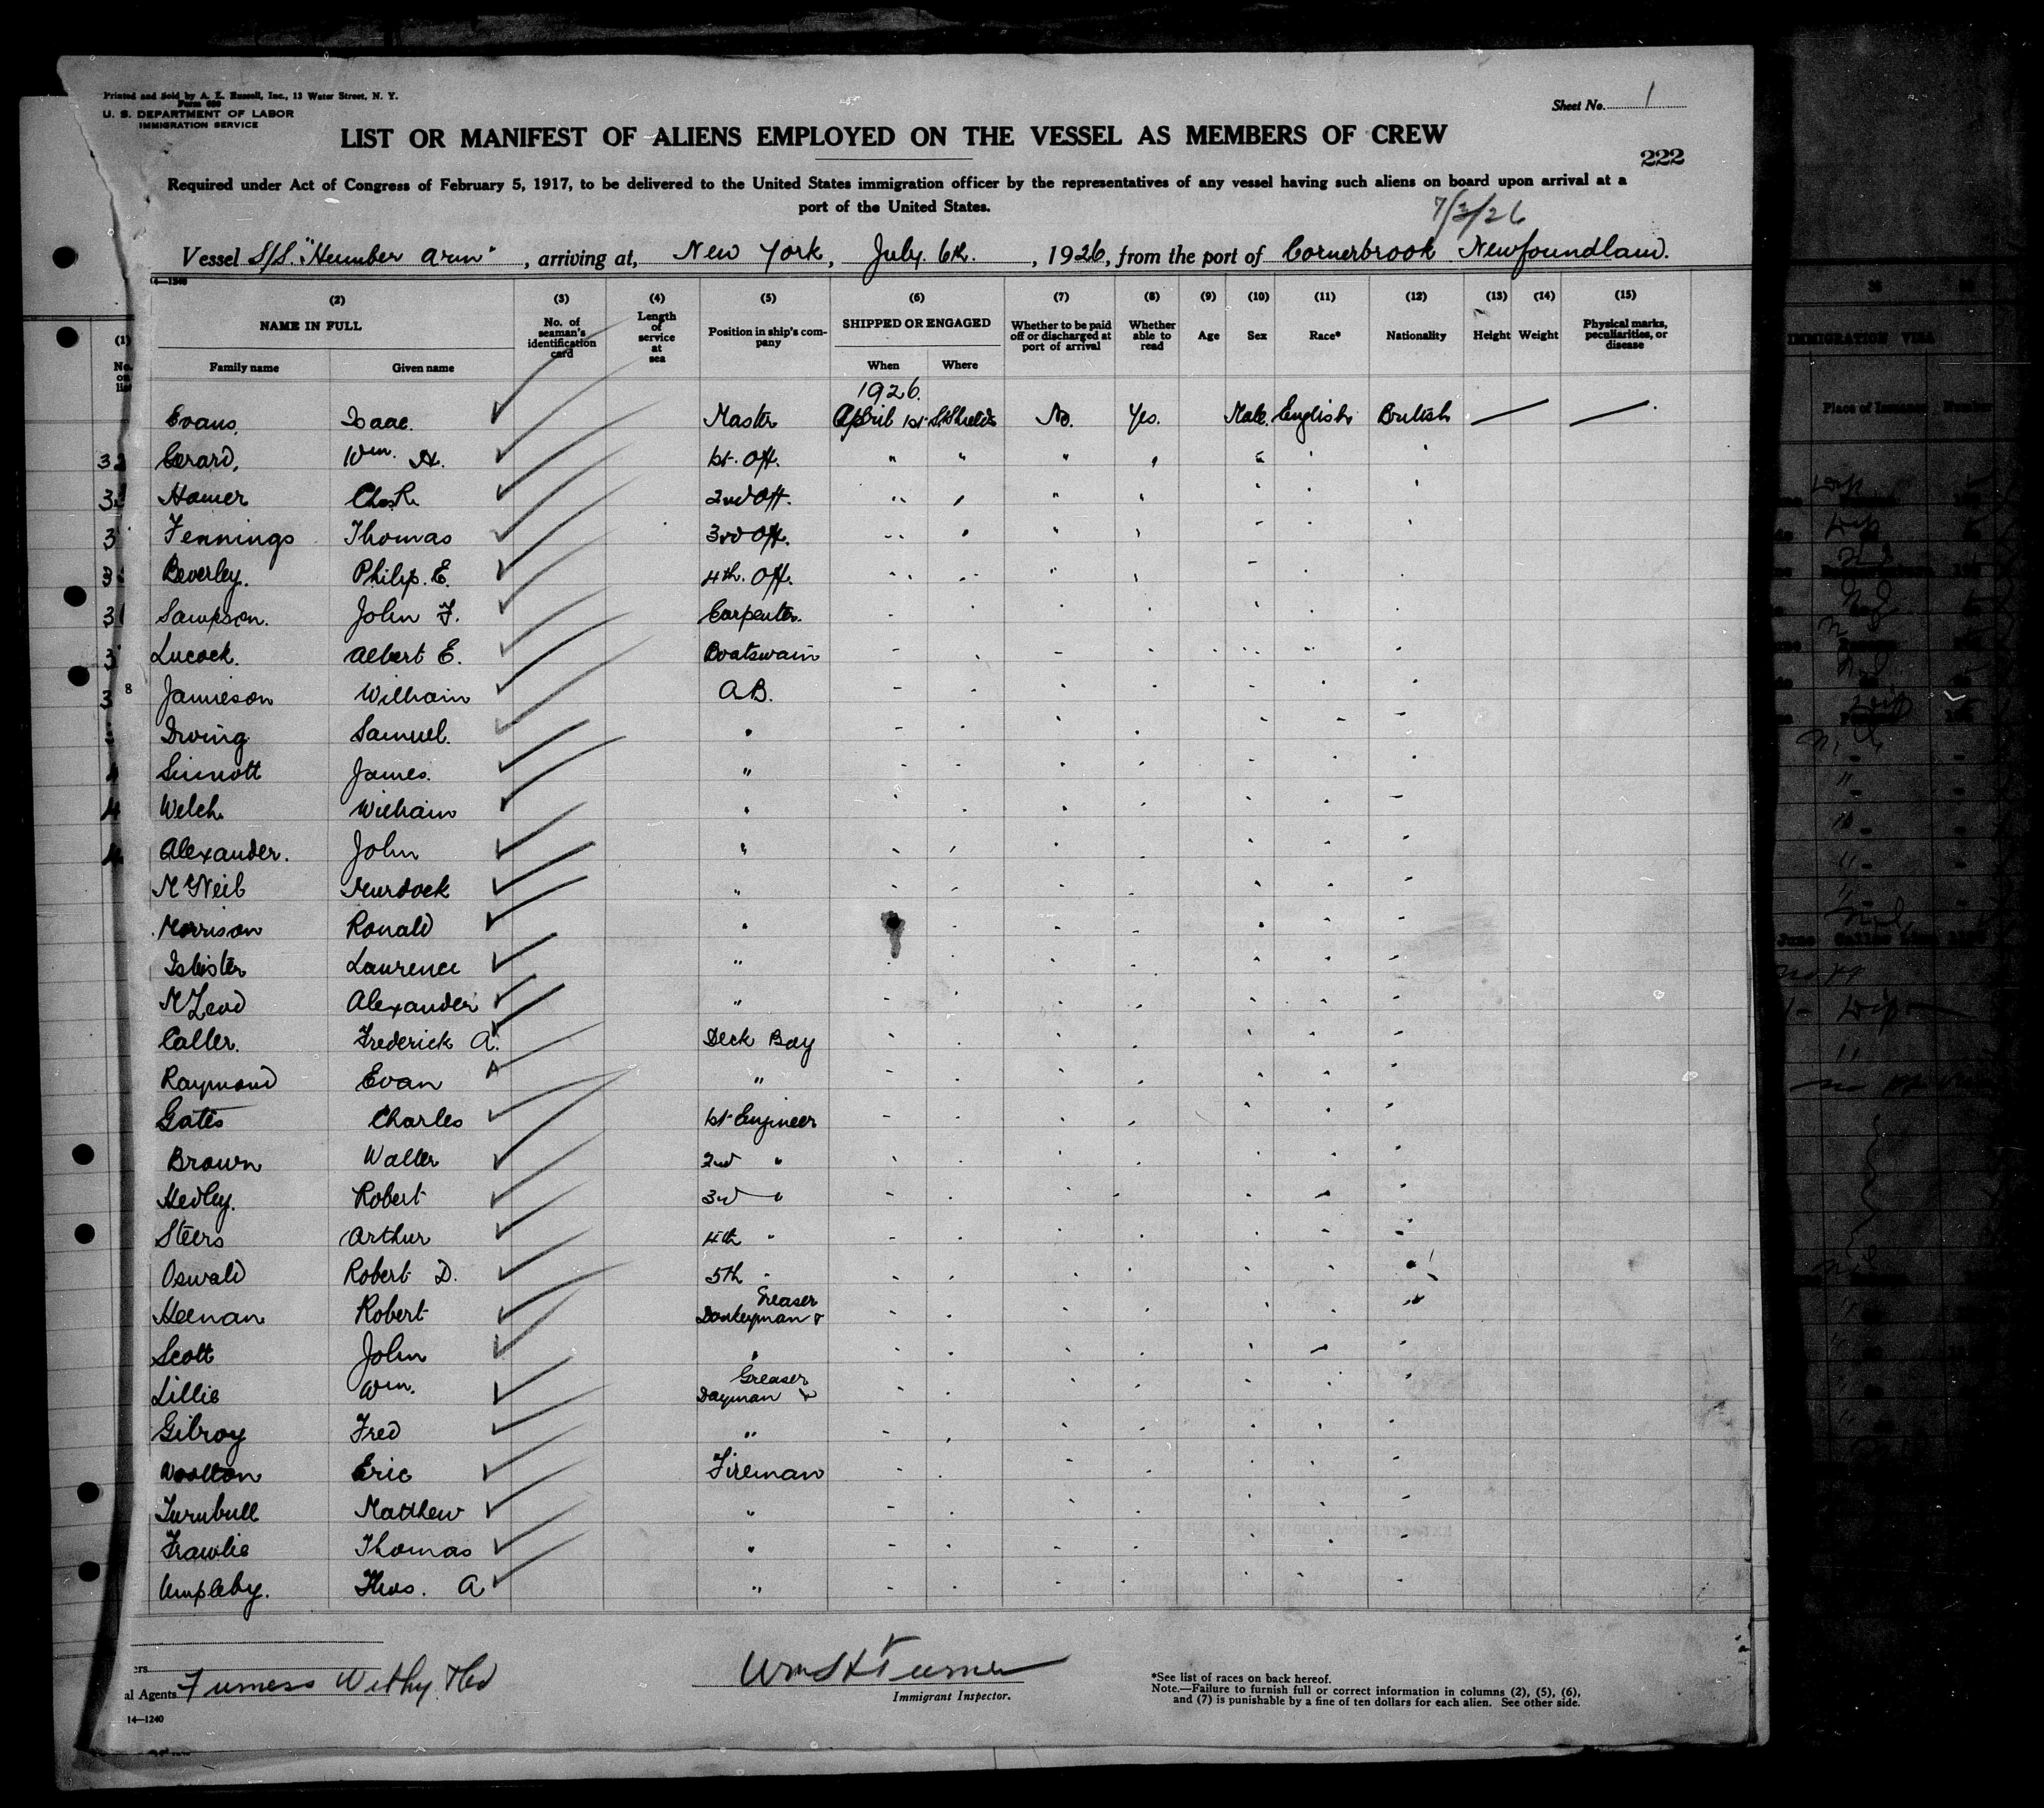 Printed and Sold by A. E. Russell, Inc., 13 Water Street, N. Y.
Form 680
U. S. DEPARTMENT OF LABOR
IMMIGRATION SERVICE
Sheet No. 1
LIST OR MANIFEST OF ALIENS EMPLOYED ON THE VESSEL AS MEMBERS OF CREW
222
Required under Act of Congress of February 5, 1917, to be delivered to the United States immigration officer by the representatives of any vessel having such aliens on board upon arrival at a
port of the United States.
7/3/26
Vessel S/S. "Humber Arm", arriving at, New York, July 6th., 1926, from the port of Cornerbrook Newfoundland.
14—1240
(1) (2) (3) (4) (5) (6) (7) (8) (9) (10) (11) (12) (13) (14) (15)
No. on list NAME IN FULL No. of seaman's identification card Length of service at sea Position in ship's company SHIPPED OR ENGAGED Whether to be paid off or discharged at port of arrival Whether able to read Age Sex Race* Nationality Height Weight Physical marks, peculiarities, or disease
Family name Given name When Where
1926.
Evans, Isaac. Master April 1st S. Shields No. Yes. Male. English British
Gerard, Wm. H. 1st. Off. " " " "
Homer Chas R. 2nd Off. " " " "
Jennings Thomas 3rd Off. " " " "
Beverley. Philip. E. 4th. Off.
Sampson. John F. Carpenter.
Lucock. Albert E. Boatswain
8 Jamieson William A.B.
Irving Samuel. "
Sinnott James. "
Welch William "
Alexander. John "
McNeil Murdock "
Morrison Ronald "
Isbister Laurence "
McLeod Alexander "
Caller. Frederick A. Deck Boy
Raymond Evan "
Gates Charles 1st Engineer
Brown Walter 2nd "
Hedley. Robert 3rd "
Steers Arthur 4th "
Oswald Robert D. 5th "
Heenan Robert Donkeyman & Greaser
Scott John "
Lillie Wm. Dayman & Greaser
Gilroy Fred "
Woolton Eric Fireman
Turnbull Matthew "
Frawlie Thomas "
Umpleby. Thos. A "
ers
al Agents Furness Withy
Wm H Turner
Immigrant Inspector.
*See list of races on back hereof.
Note.—Failure to furnish full or correct information in columns (2), (5), (6),
and (7) is punishable by a fine of ten dollars for each alien. See other side.
14—1240
IMMIGRATION VISA
Place of Issuance Number